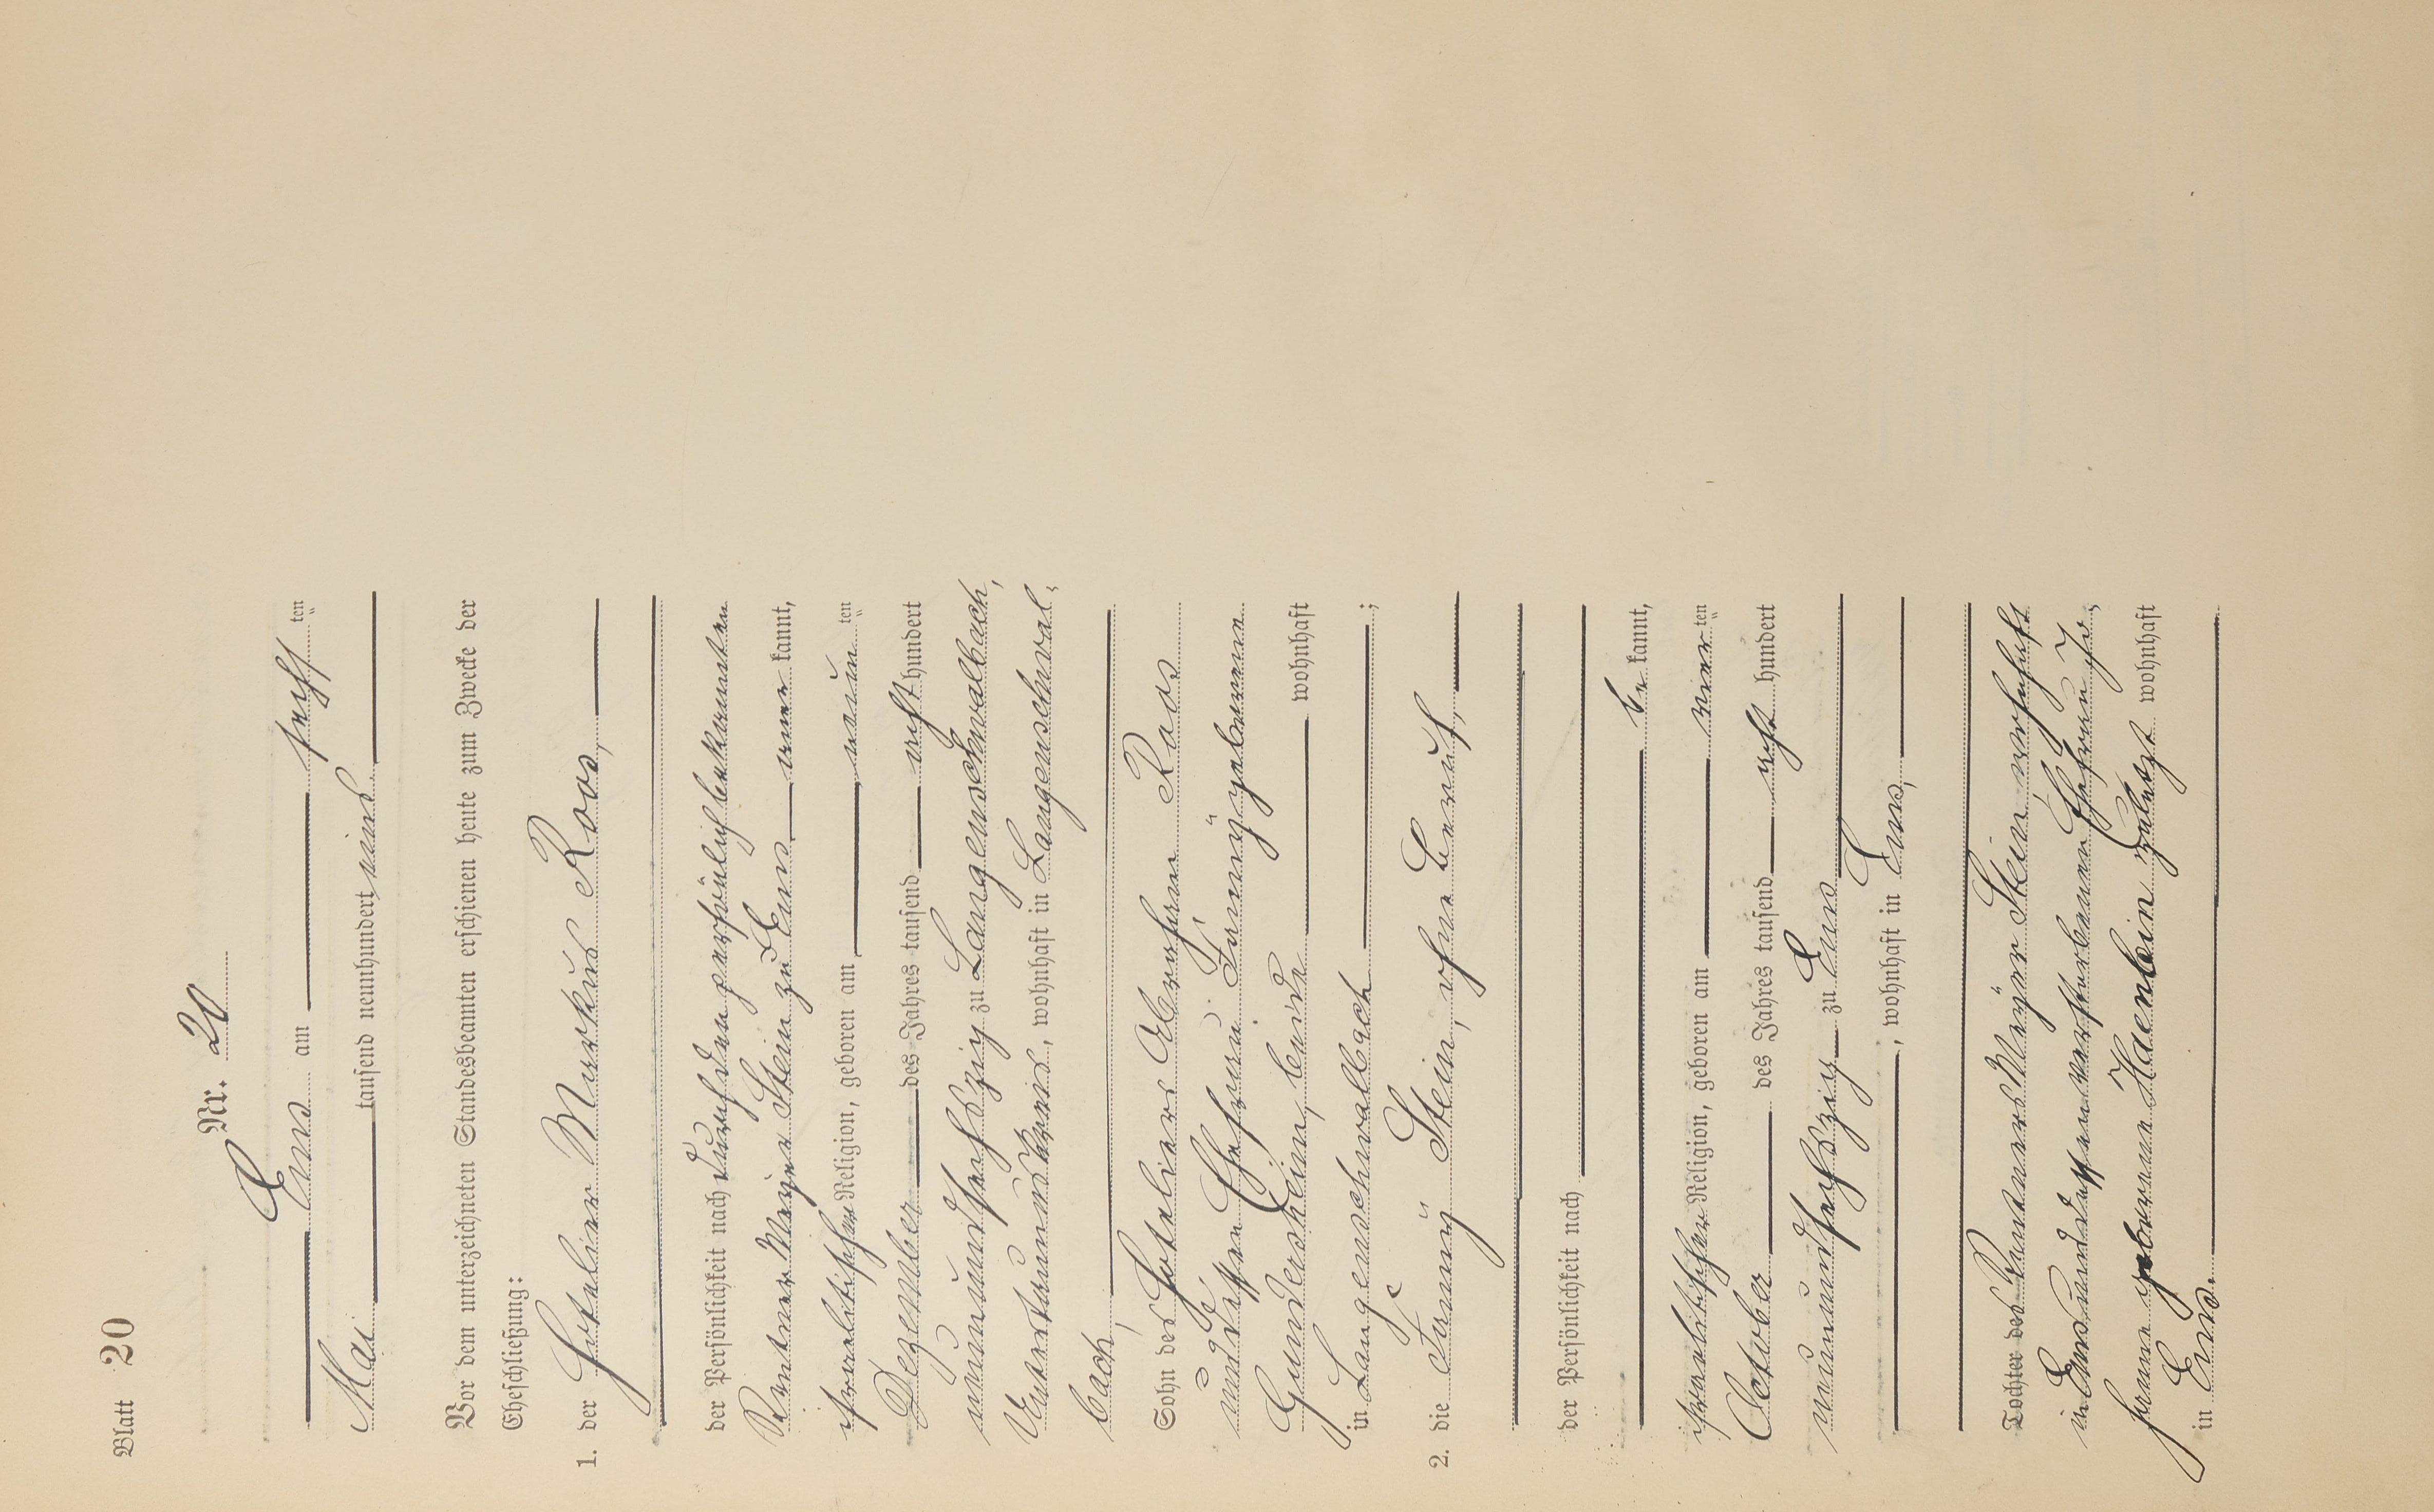 Blatt 20
Nr. 20
Ems am sechs ten
Mai tausend neunhundert eins.
Vor dem unterzeichneten Standesbeamten erschienen heute zum Zwecke der
Eheschließung:
1. der Hotelier Markus Roos,
der Persönlichkeit nach durch den persönlich bekannten
Rentner Meyer Stein zu Ems aner kannt,
israelitischer Religion, geboren am neun ten
Dezember des Jahres tausend acht hundert
neunundsechszig zu Langenschwalbach,
Untertaunuskreis, wohnhaft in Langenschwal-
bach,
Sohn des Hoteliers Abraham Roos
und dessen Ehefrau Fanny geborene
Gundersheim, beide wohnhaft
in Langenschwalbach;
2. die Fanny Stein, ohne Beruf,
der Persönlichkeit nach
be kannt,
israelitischer Religion, geboren am vier ten
October des Jahres tausend acht hundert
neunundsechszig zu Ems
, wohnhaft in Ems,
Tochter des Rentners Meyer Stein, wohnhaft
in Ems und dessen verstorbenen Ehefrau Jo-
hanna geborene Haenlein zuletzt wohnhaft
in Ems.